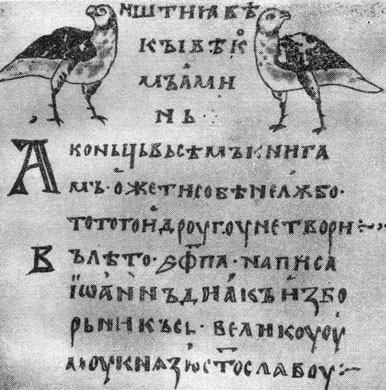 вѣ
къівѣко
мъами
нь
А коньцьвьсѣмъкнига
мъ·ожетисобѣнелюбо·
тотогоидроугоунетвори
Вълѣто·ѕфпа·написа
іѡаннъдиꙗкъизбо
рьникъсь·великоуоу
моукнѧзюстославоу